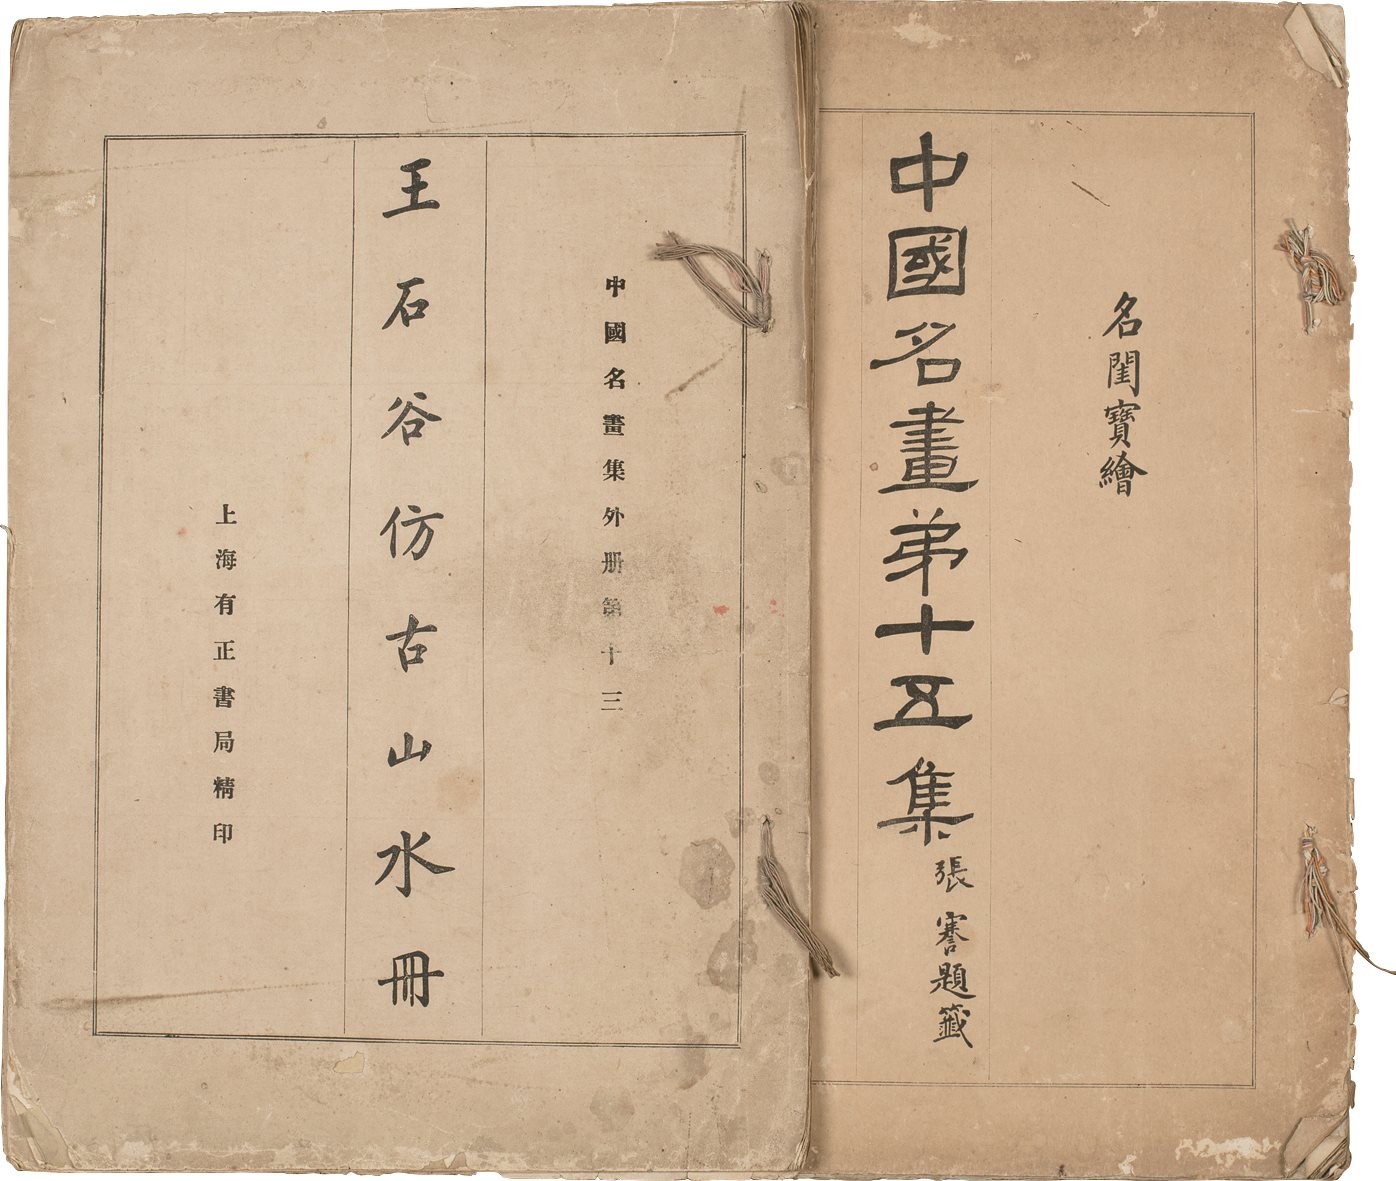 名閨寶繪
中國名畫弟十五集
張謇題籤
中國名畫集外册第十三
王石谷仿古山水冊
上海有正書局精印